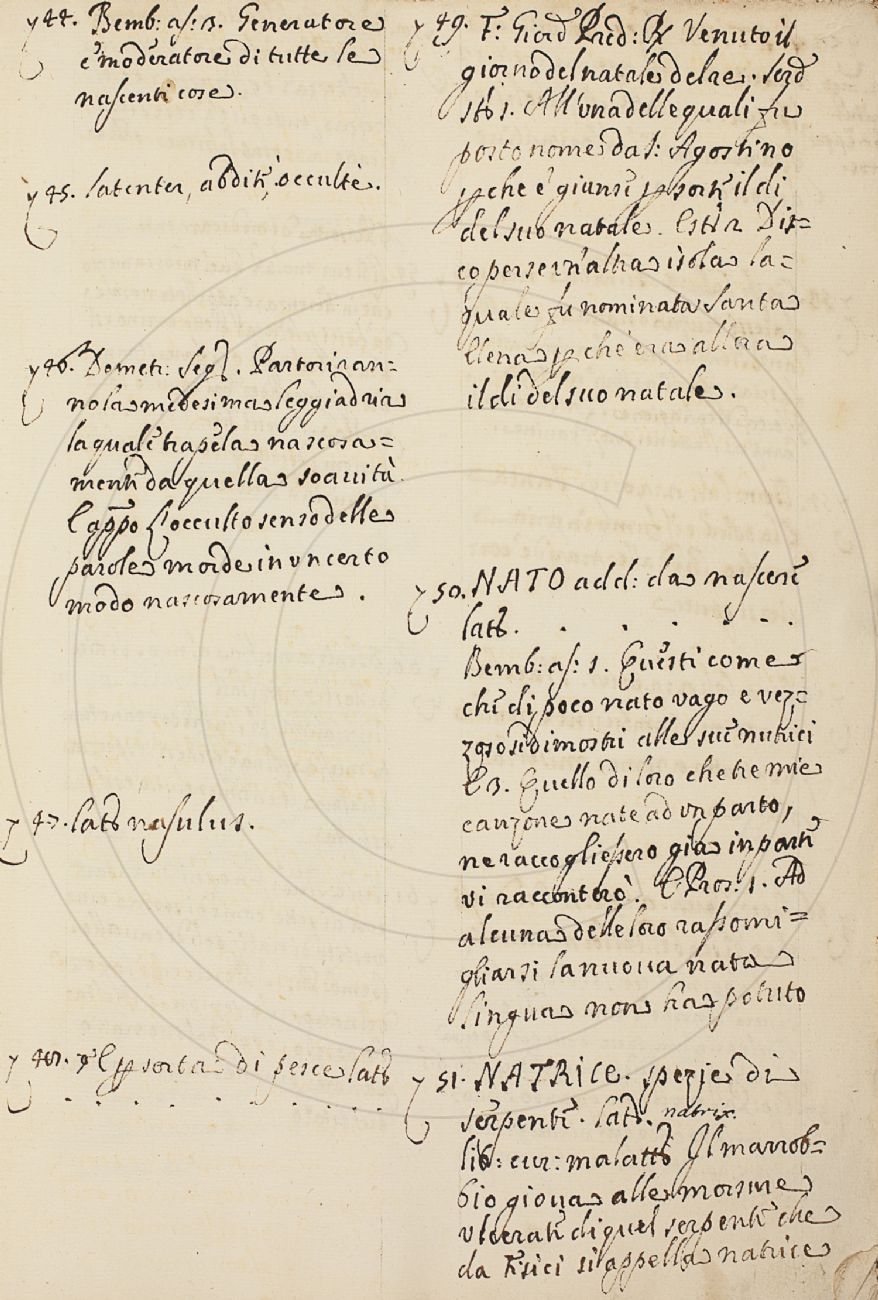 y 44. Bemb: as: 3. Generatore
e moderatore di tutte le
nascenti cose.
y 45. latenter, abditè, occultè.
y 46. Demetr: Seg. Partoriran=
no la medesima leggiadria
la quale trapela nascosa=
mente da quella soavità.
E appo l'occulto senso delle
parole morde in un certo
modo nascosamente.
y 47. lat nasulus.
y 48. E sorta di pesce lat
. . . . . . . . .
y 49. F: Giord Pred: R Venuto il
giorno del natale del re. Serd
st: 1. All'una delle quali fu
posto nome da S: Agostino
p che e' giunse p sorte il di
del suo natale. E st: 2 Dis=
coperse un'altra isola la=
quale fu nominata Santa
Elena p che era allora
il dì del suo natale.
y 50. NATO add: da nascere
lat. . . . . . .
Bemb: as: 1. Questi come
che di poco nato vago e vez=
zoso si dimostri alle sue nutrici
E 3. Quello di loro che tre mie
canzone nate ad un parto,
ne raccogliessero gia in parte
vi racconterò. E Pros: 1. Ad
alcuna delle loro rassomi=
gliarsi la nuova nata
lingua non ha potuto
y 51. NATRICE. spezie di
serpente. lat. natrix.
lib: cur: malatt Il marrob=
bio giova alle morsure
ulcerate di quel serpente che
da Fisici si appella natrice